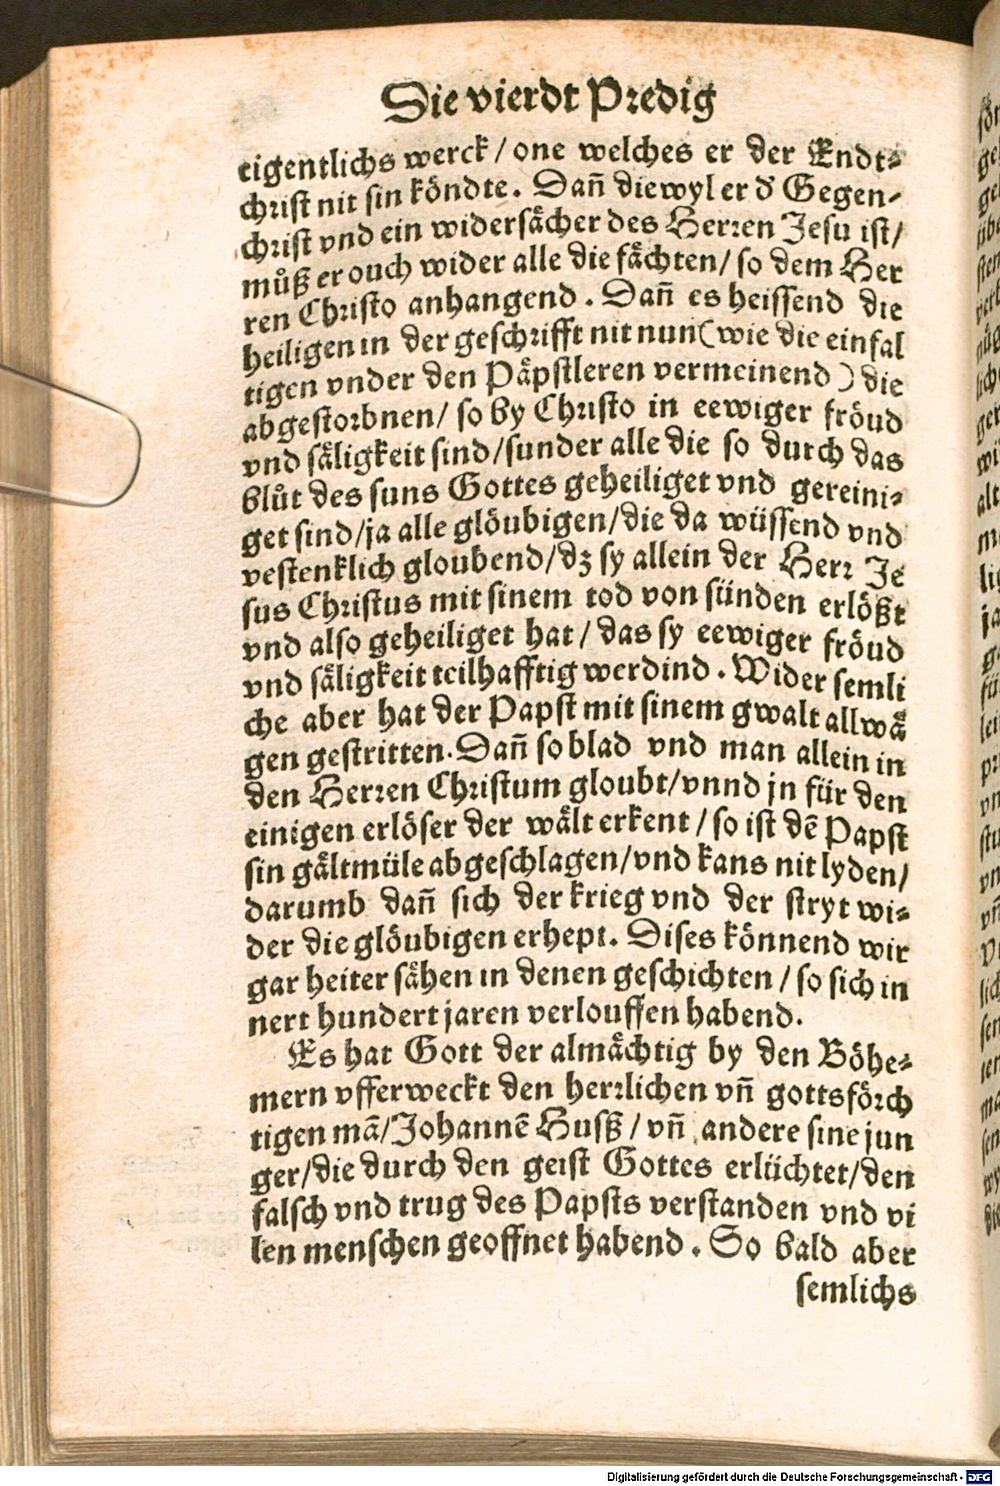 Die vierdt Predig
eigentlichs werck / one welches er der Endt⸗
christ nit sin köndte. Dañ diewyl er d' Gegen⸗
christ vnd ein widersåcher des Herren Jesu ist/
můß er ouch wider alle die fåchten/ so dem Her
ren Christo anhangend. Dañ es heissend die
heiligen in der geschrifft nit nun (wie die einfal
tigen vnder den Påpstleren vermeinend) die
abgestorbnen/ so by Christo in eewiger fröud
vnd såligkeit sind/sunder alle die so durch das
blůt des suns Gottes geheiliget vnd gereini⸗
get sind/ja alle glöubigen/die da wüssend vnd
vestenklich gloubend/dz sy allein der Herr Je
sus Christus mit sinem tod von sünden erlößt
vnd also geheiliget hat / das sy eewiger fröud
vnd såligkeit teilhafftig werdind. Wider semli
che aber hat der Papst mit sinem gwalt allwå
gen gestritten. Dañ so blad vnd man allein in
den Herren Christum gloubt/vnnd jn für den
einigen erlöser der wålt erkent / so ist dē Papst
sin gåltmüle abgeschlagen/vnd kans nit lyden/
darumb dañ sich der krieg vnd der stryt wi⸗
der die glöubigen erhept. Dises könnend wir
gar heiter såhen in denen geschichten / so sich in
nert hundert jaren verlouffen habend.
Es hat Gott der almåchtig by den Böhe⸗
mern vfferweckt den herrlichen vñ gottsförch
tigen mā/Johannē Husß / vñ andere sine jun
ger/die durch den geist Gottes erlüchtet/den
falsch vnd trug des Papsts verstanden vnd vi
len menschen geoffnet habend. So bald aber
semlichs
Digitalisierung gefördert durch die Deutsche Forschungsgemeinschaft - DFG